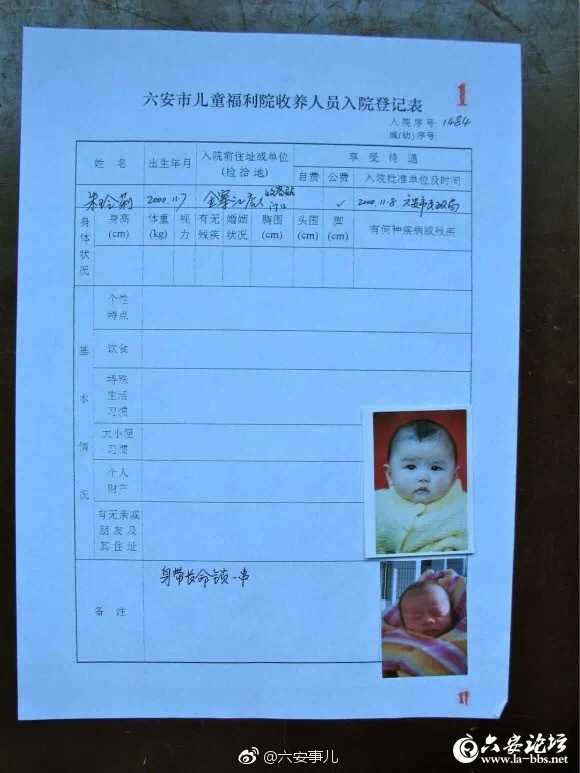 六安市儿童福利院收养人员入院登记表
1
入院序号 1484
城(幼)序号
姓名 出生年月 入院前住址或单位(检拾地) 享受待遇
自费 公费 入院批准单位及时间
2000.11.7 金寨 门口 ✓ 2000.11.8 六安市民政局
身体状况 身高(cm) 体重(kg) 视力 有无残疾 婚姻状况 胸围(cm) 头围(cm) 脚(cm) 有何种疾病或残疾
基本情况
个性特点
饮食
特殊生活习惯
大小便习惯
个人财产
有无亲戚朋友及其住址
备注 身带长命锁一串
@六安事儿
六安论坛
www.la-bbs.net